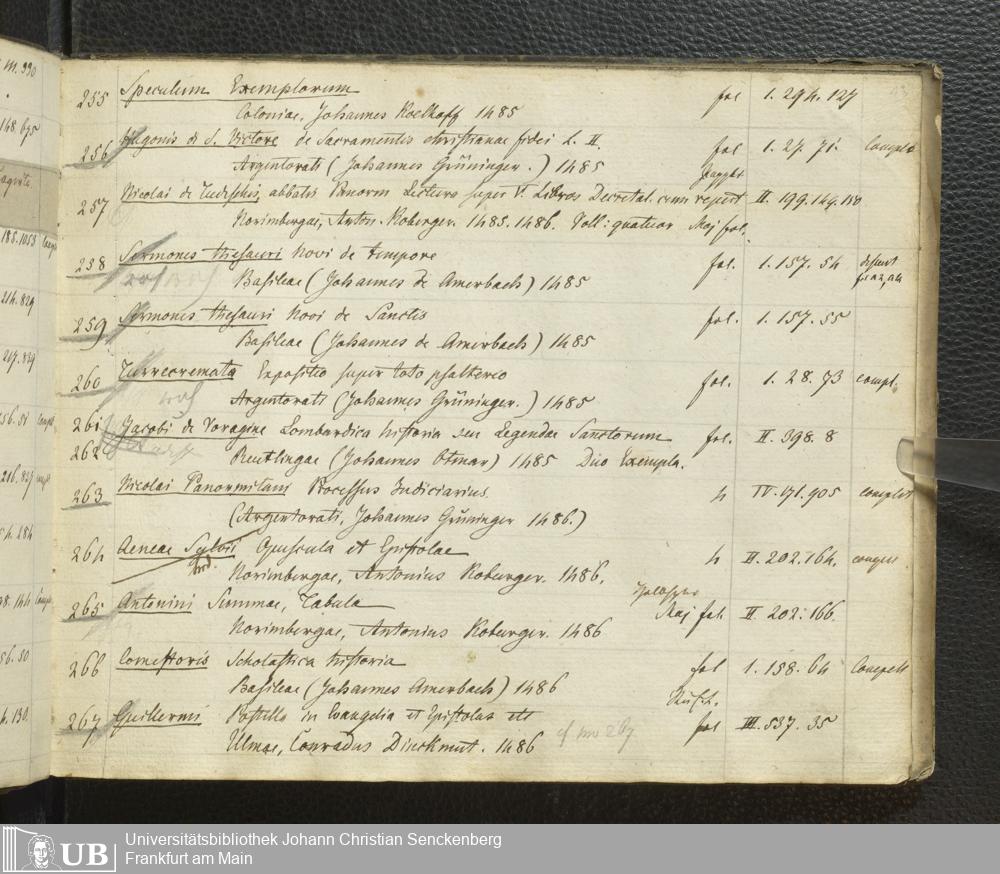 m. 990
148. 695
185. 1053
214. 829
217. 839
56. 51 Compl
216. 827
98. 144 Compl
56. 50
43
255 Speculum Exemplorum fol 1. 294. 127
Coloniae, Johannes Koelhoff 1485
256 Hugonis di S. Victore de Sacramentis christianae fidei L. II. fol 1. 27. 71. Complet
Argentorati (Johannes Grüninger.) 1485
257 Nicolai de Tudeschis, abbatis Panorm Lectura super V. Libros Decretal. cum repert II. 199. 149. 150
Norimbergae, Anton. Koberger. 1485. 1486. Voll: quatuor Maj fol.
258 Sermones thesauri novi de tempore fol. 1. 157. 54 desunt
Basileae (Johannes de Amerbach) 1485
259 Sermones thesauri novi de Sanctis fol. 1. 157. 55
Basileae (Johannes de Amerbach) 1485
260 Turrecremata Expositio super toto psalterio fol. 1. 28. 73 compl.
Argentorati (Johannes Grüninger.) 1485
261 Jacobi de Voragine Lombardica historia seu Legendae Sanctorum fol. II. 398. 8
262 Reutlingae (Johannes Otmar) 1485 Duo Exempla.
263 Nicolai Panormitani Processus Judiciarius 4 IV. 171. 905 complet
(Argentorati, Johannes Grüninger 1486.)
264 Aeneae Sylvii Opuscula et Epistolae 4 II. 202. 164.
Norimbergae, Antonius Koburger. 1486.
265 Antonini Summae, Tabula Maj fol. II. 202. 166.
Norimbergae, Antonius Koburger. 1486
266 Comestoris Scholastica historia fol 1. 158. 64 Complt
Basileae (Johannes Amerbach) 1486
267 Guillermi Postilla in Evangelia et Epistolas etc fol III. 537. 35
Ulmae, Conradus Dinckmut. 1486 cf no 267
UB Universitätsbibliothek Johann Christian Senckenberg
Frankfurt am Main